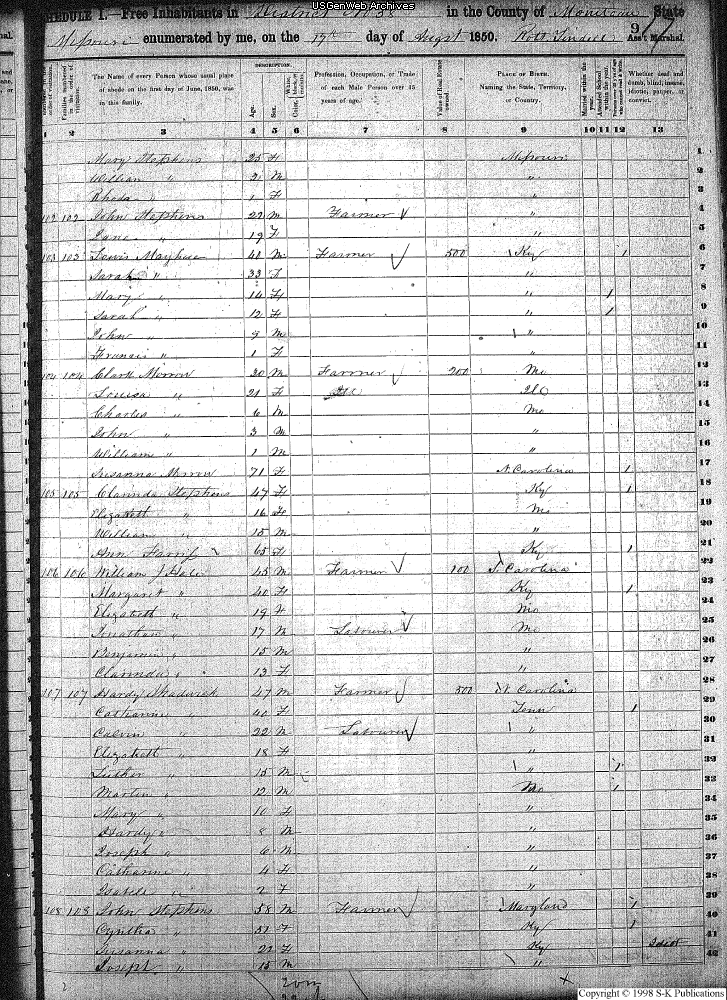 USGenWeb Archives
SCHEDULE I.—Free Inhabitants in District No 58 in the County of Moniteau State
of Missouri enumerated by me, on the 17th day of Augst 1850. Ass't Marshal.
DESCRIPTION.
The Name of every Person whose usual place of abode on the first day of June, 1850, was in this family.
Age.
Sex.
Profession, Occupation, or Trade of each Male Person over 15 years of age.
Value of Real Estate owned.
PLACE OF BIRTH. Naming the State, Territory, or Country.
Married within the year.
Attended School within the year.
Whether deaf and dumb, blind, insane, idiotic, pauper, or convict.
1 2 3 4 5 6 7 8 9 10 11 12 13
Mary Stephens 25 F Missouri 1
William " 2 M " 2
Rhoda " 1 F " 3
102 102 John Stephens 22 M Farmer " 4
Jane " 19 F " 5
103 103 Lewis Mayhew 40 M Farmer 500 Ky 1 6
Sarah " 33 F " 7
Mary " 14 F " 1 8
Sarah " 12 F " 1 9
John " 9 M " 10
Francis " 1 F " 11
104 104 Clark Morrow 30 M Farmer 200 Mo 12
Louisa " 21 F Ill 13
Charles " 6 M Mo 14
John " 3 M " 15
William " 1 M " 16
Susanna Morrow 71 F N. Carolina 1 17
105 105 Clarinda Stephens 47 F Ky 1 18
Elizabeth " 16 F Mo 19
William " 15 M " 20
Ann 65 F Ky 1 21
106 106 William J Hale 45 M Farmer 100 S. Carolina 22
Margaret " 40 F Ky 1 23
Elizabeth " 19 F Mo 24
Jonathan " 17 M Labourer Mo 25
Benjamin " 15 M " 26
Clarinda " 13 F " 27
107 107 Hardy Shadwick 47 M Farmer 500 N. Carolina 28
Catharine " 40 F Tenn 1 29
Calvin " 22 M Labourer " 30
Elizabeth " 18 F " 31
Luther " 15 M " 1 32
Martin " 12 M Mo 1 33
Mary " 10 F " 34
Hardy " 8 M " 35
Joseph " 6 M " 36
Catharine " 4 F " 37
Isabell " 2 F " 38
108 108 John Stephens 58 M Farmer Maryland 1 39
Cynthia " 51 F Ky 1 40
Susanna " 22 F Ky Idiot 41
Joseph " 15 M " 42
Copyright © 1998 S-K Publications